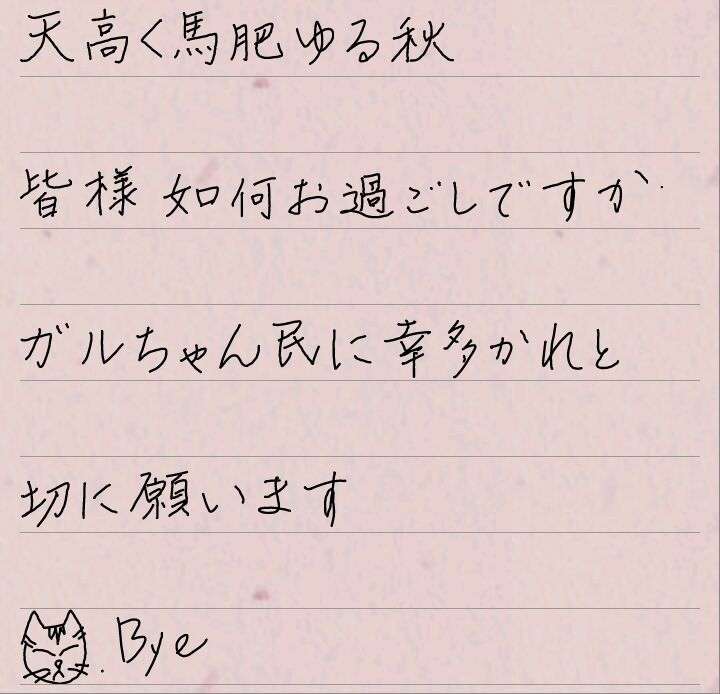 天高く馬肥ゆる秋
皆様 如何お過ごしですか
ガルちゃん民に幸多かれと
切に願います
Bye